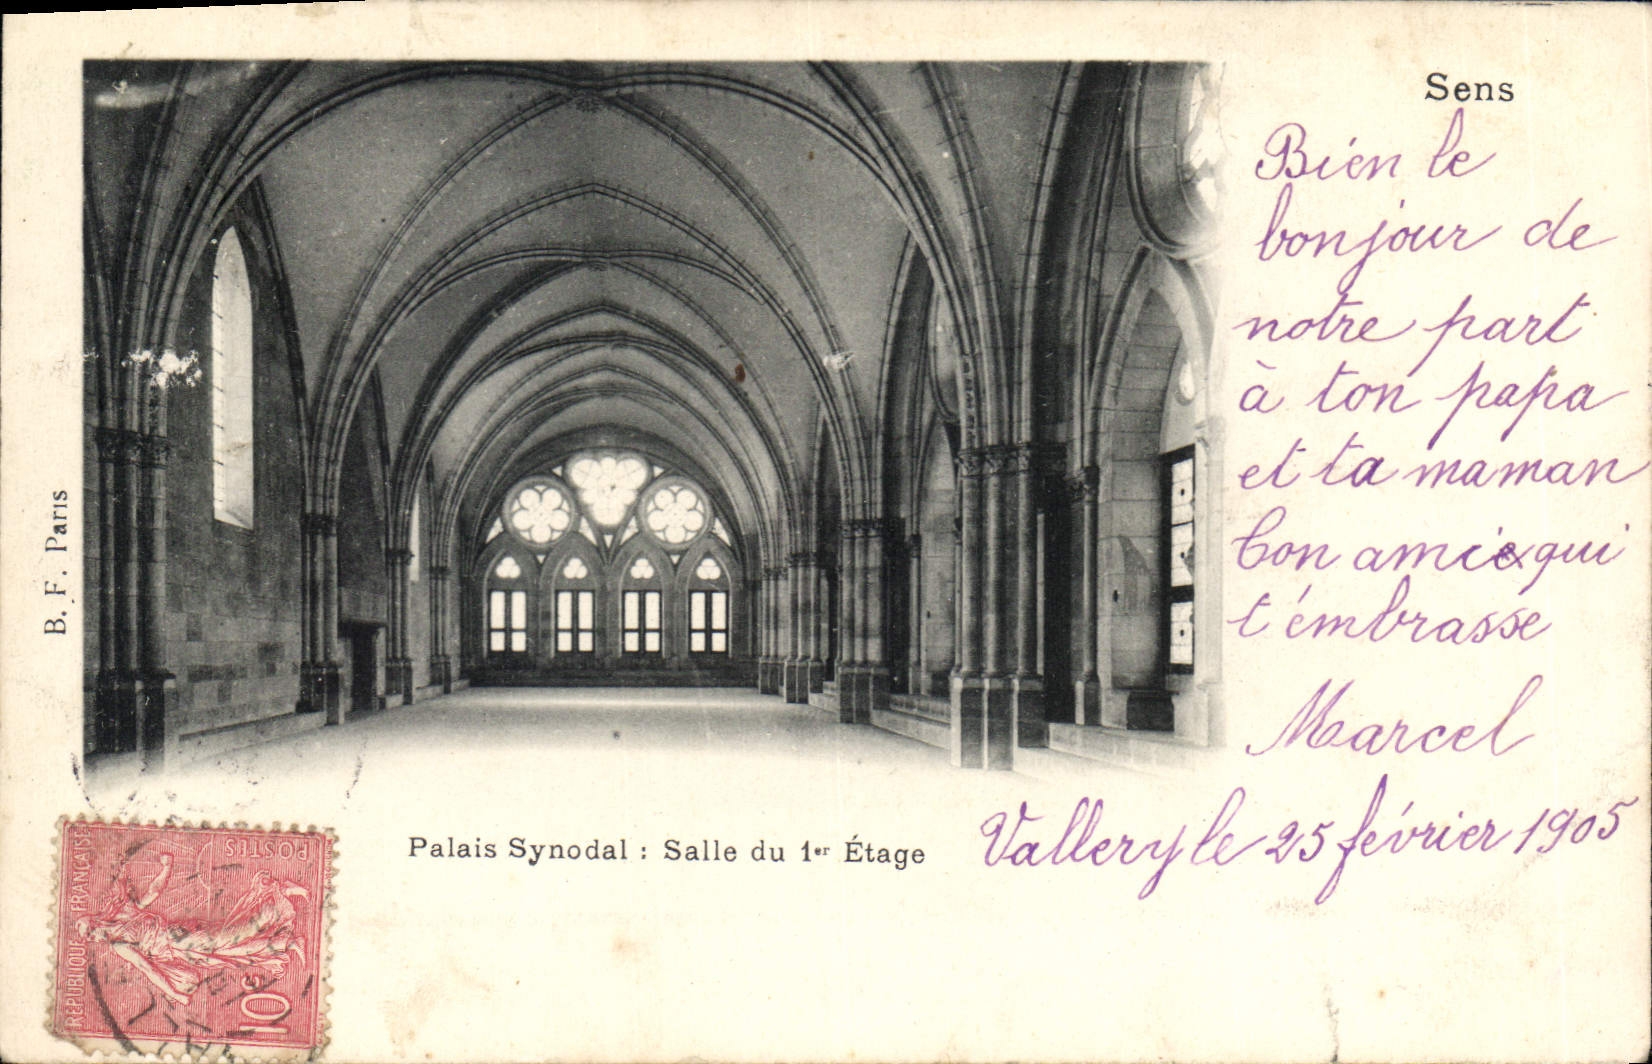 Sens
Bien le
bonjour de
notre part
à ton papa
et ta maman
ton amie qui
t'émbrasse
Marcel
Vallery le 25 février 1905
Palais Synodal : Salle du 1er Étage
B. F. Paris
RÉPUBLIQUE FRANÇAISE
POSTES
10c